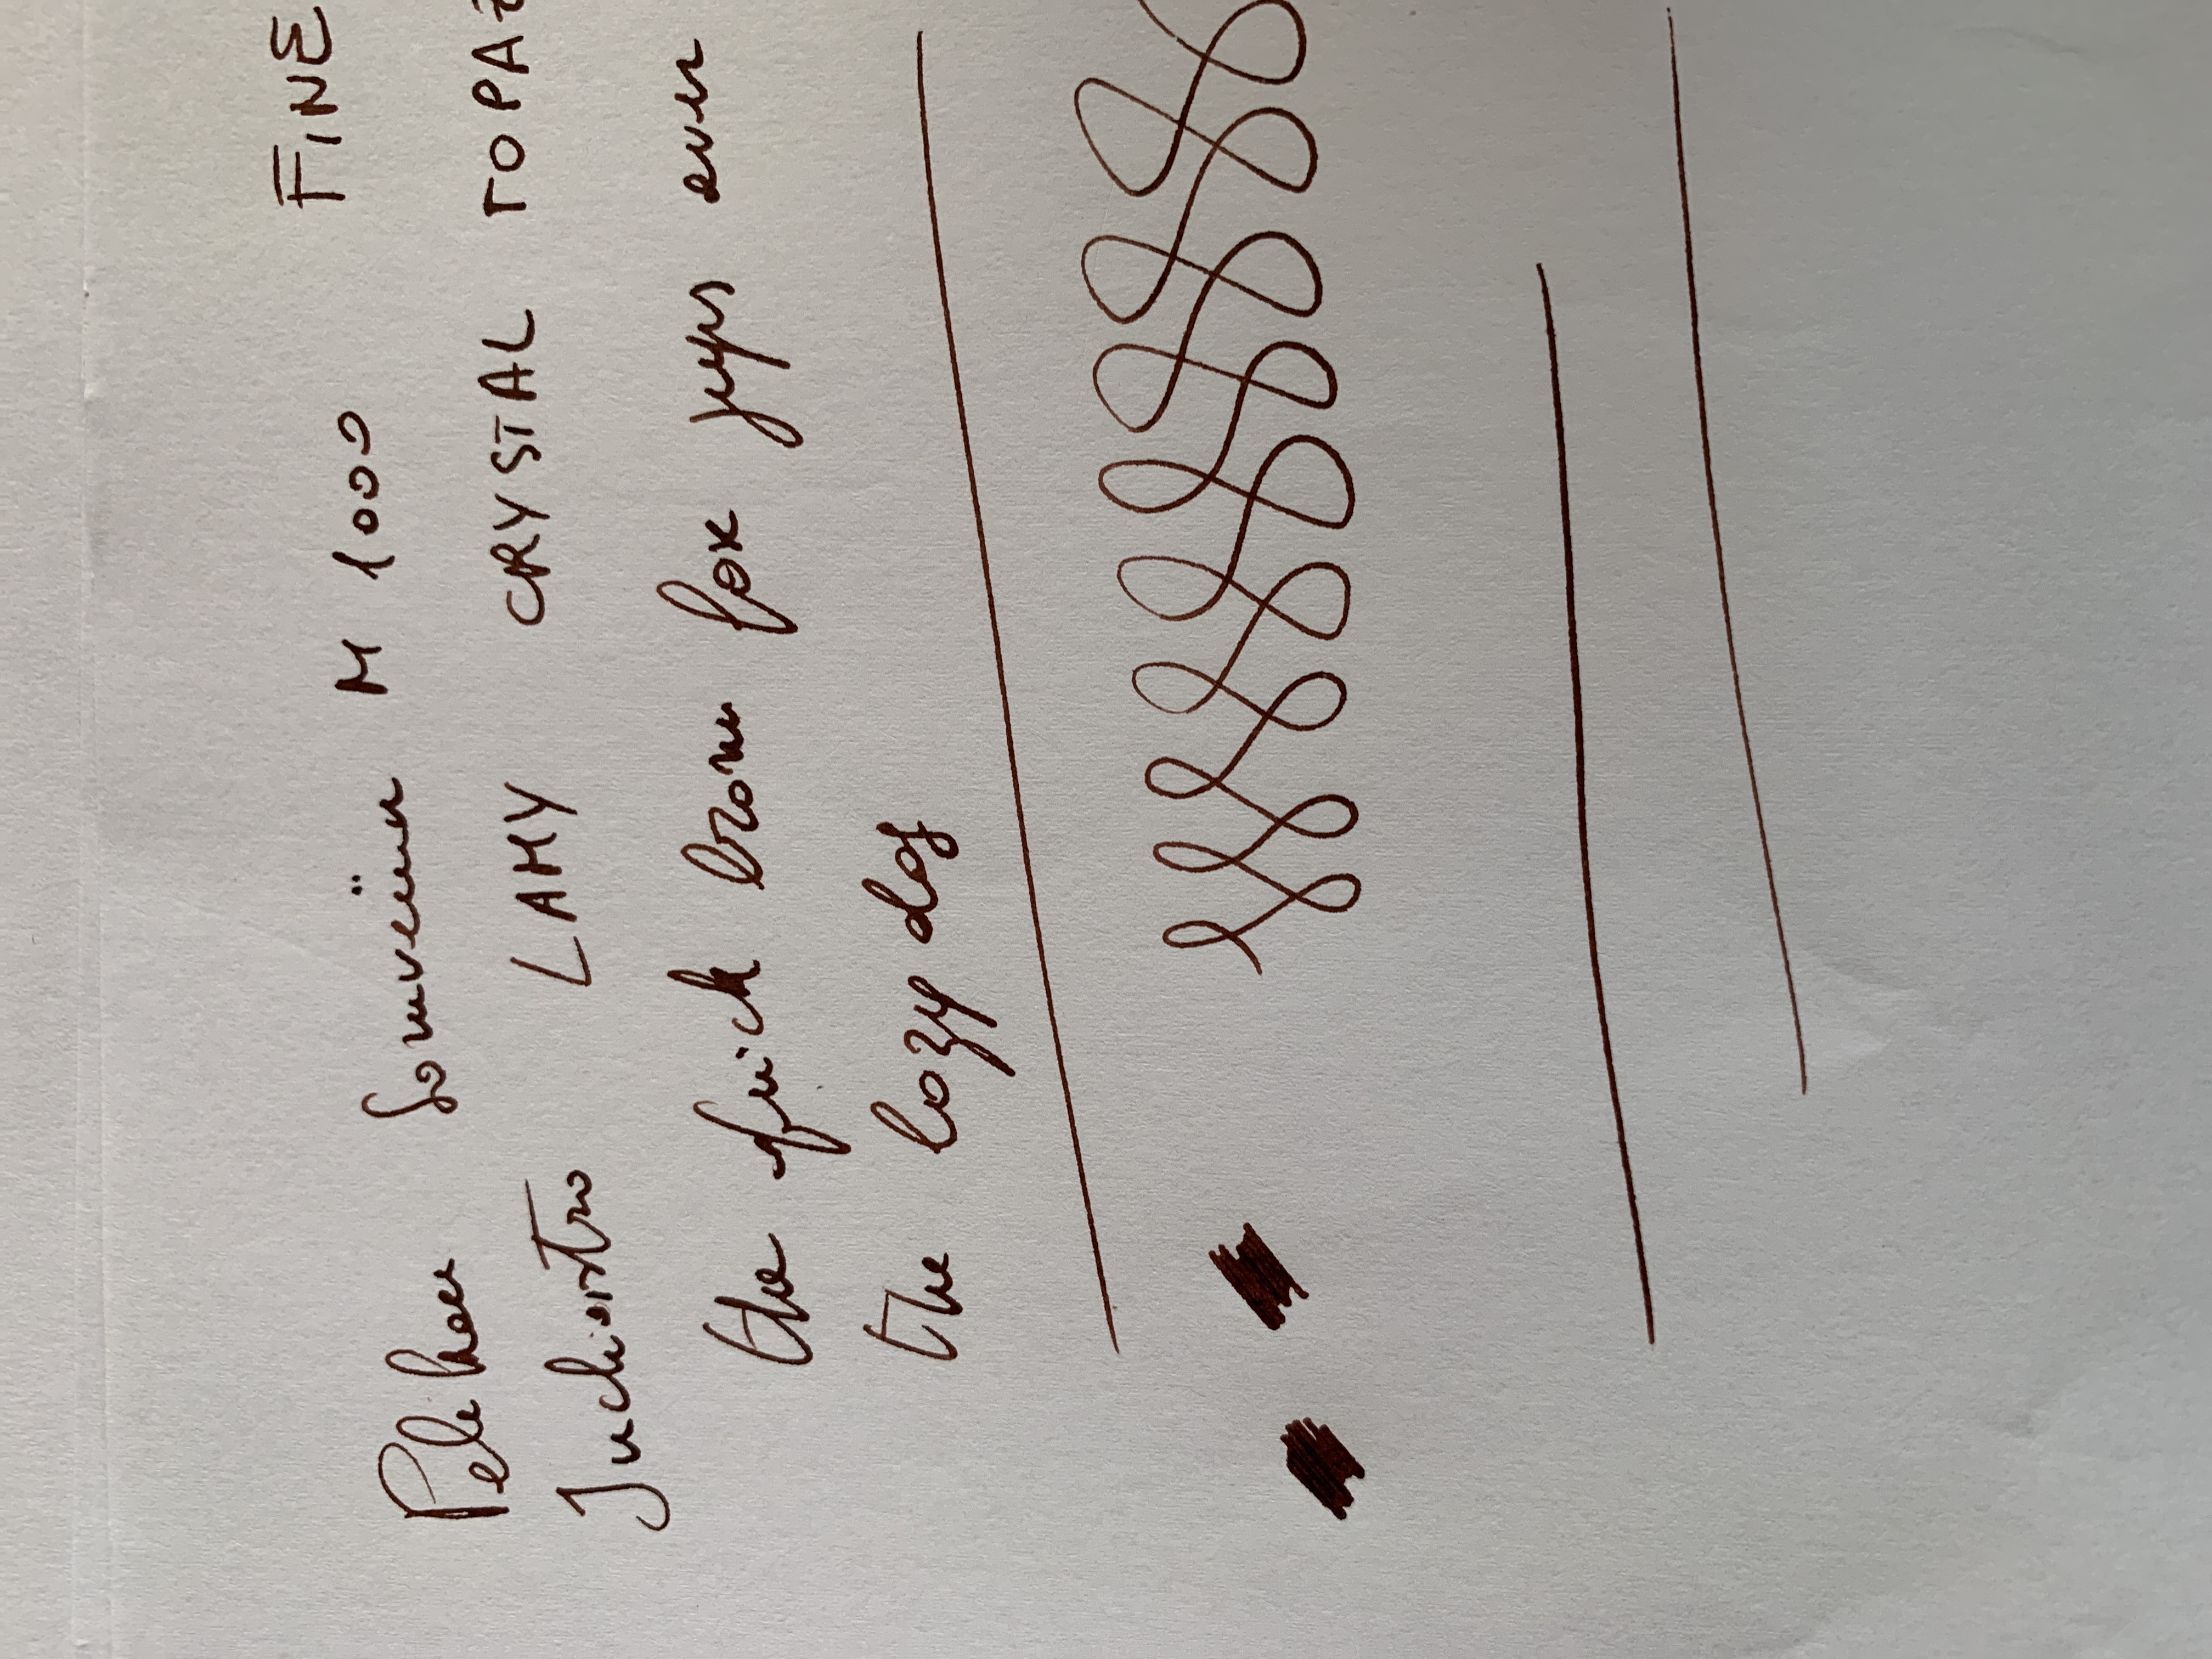 Pelikan Souverän M 1000 FINE
Inchiostro LAMY CRYSTAL TOPAZ
the quick brown fox jups over
the lazy dog